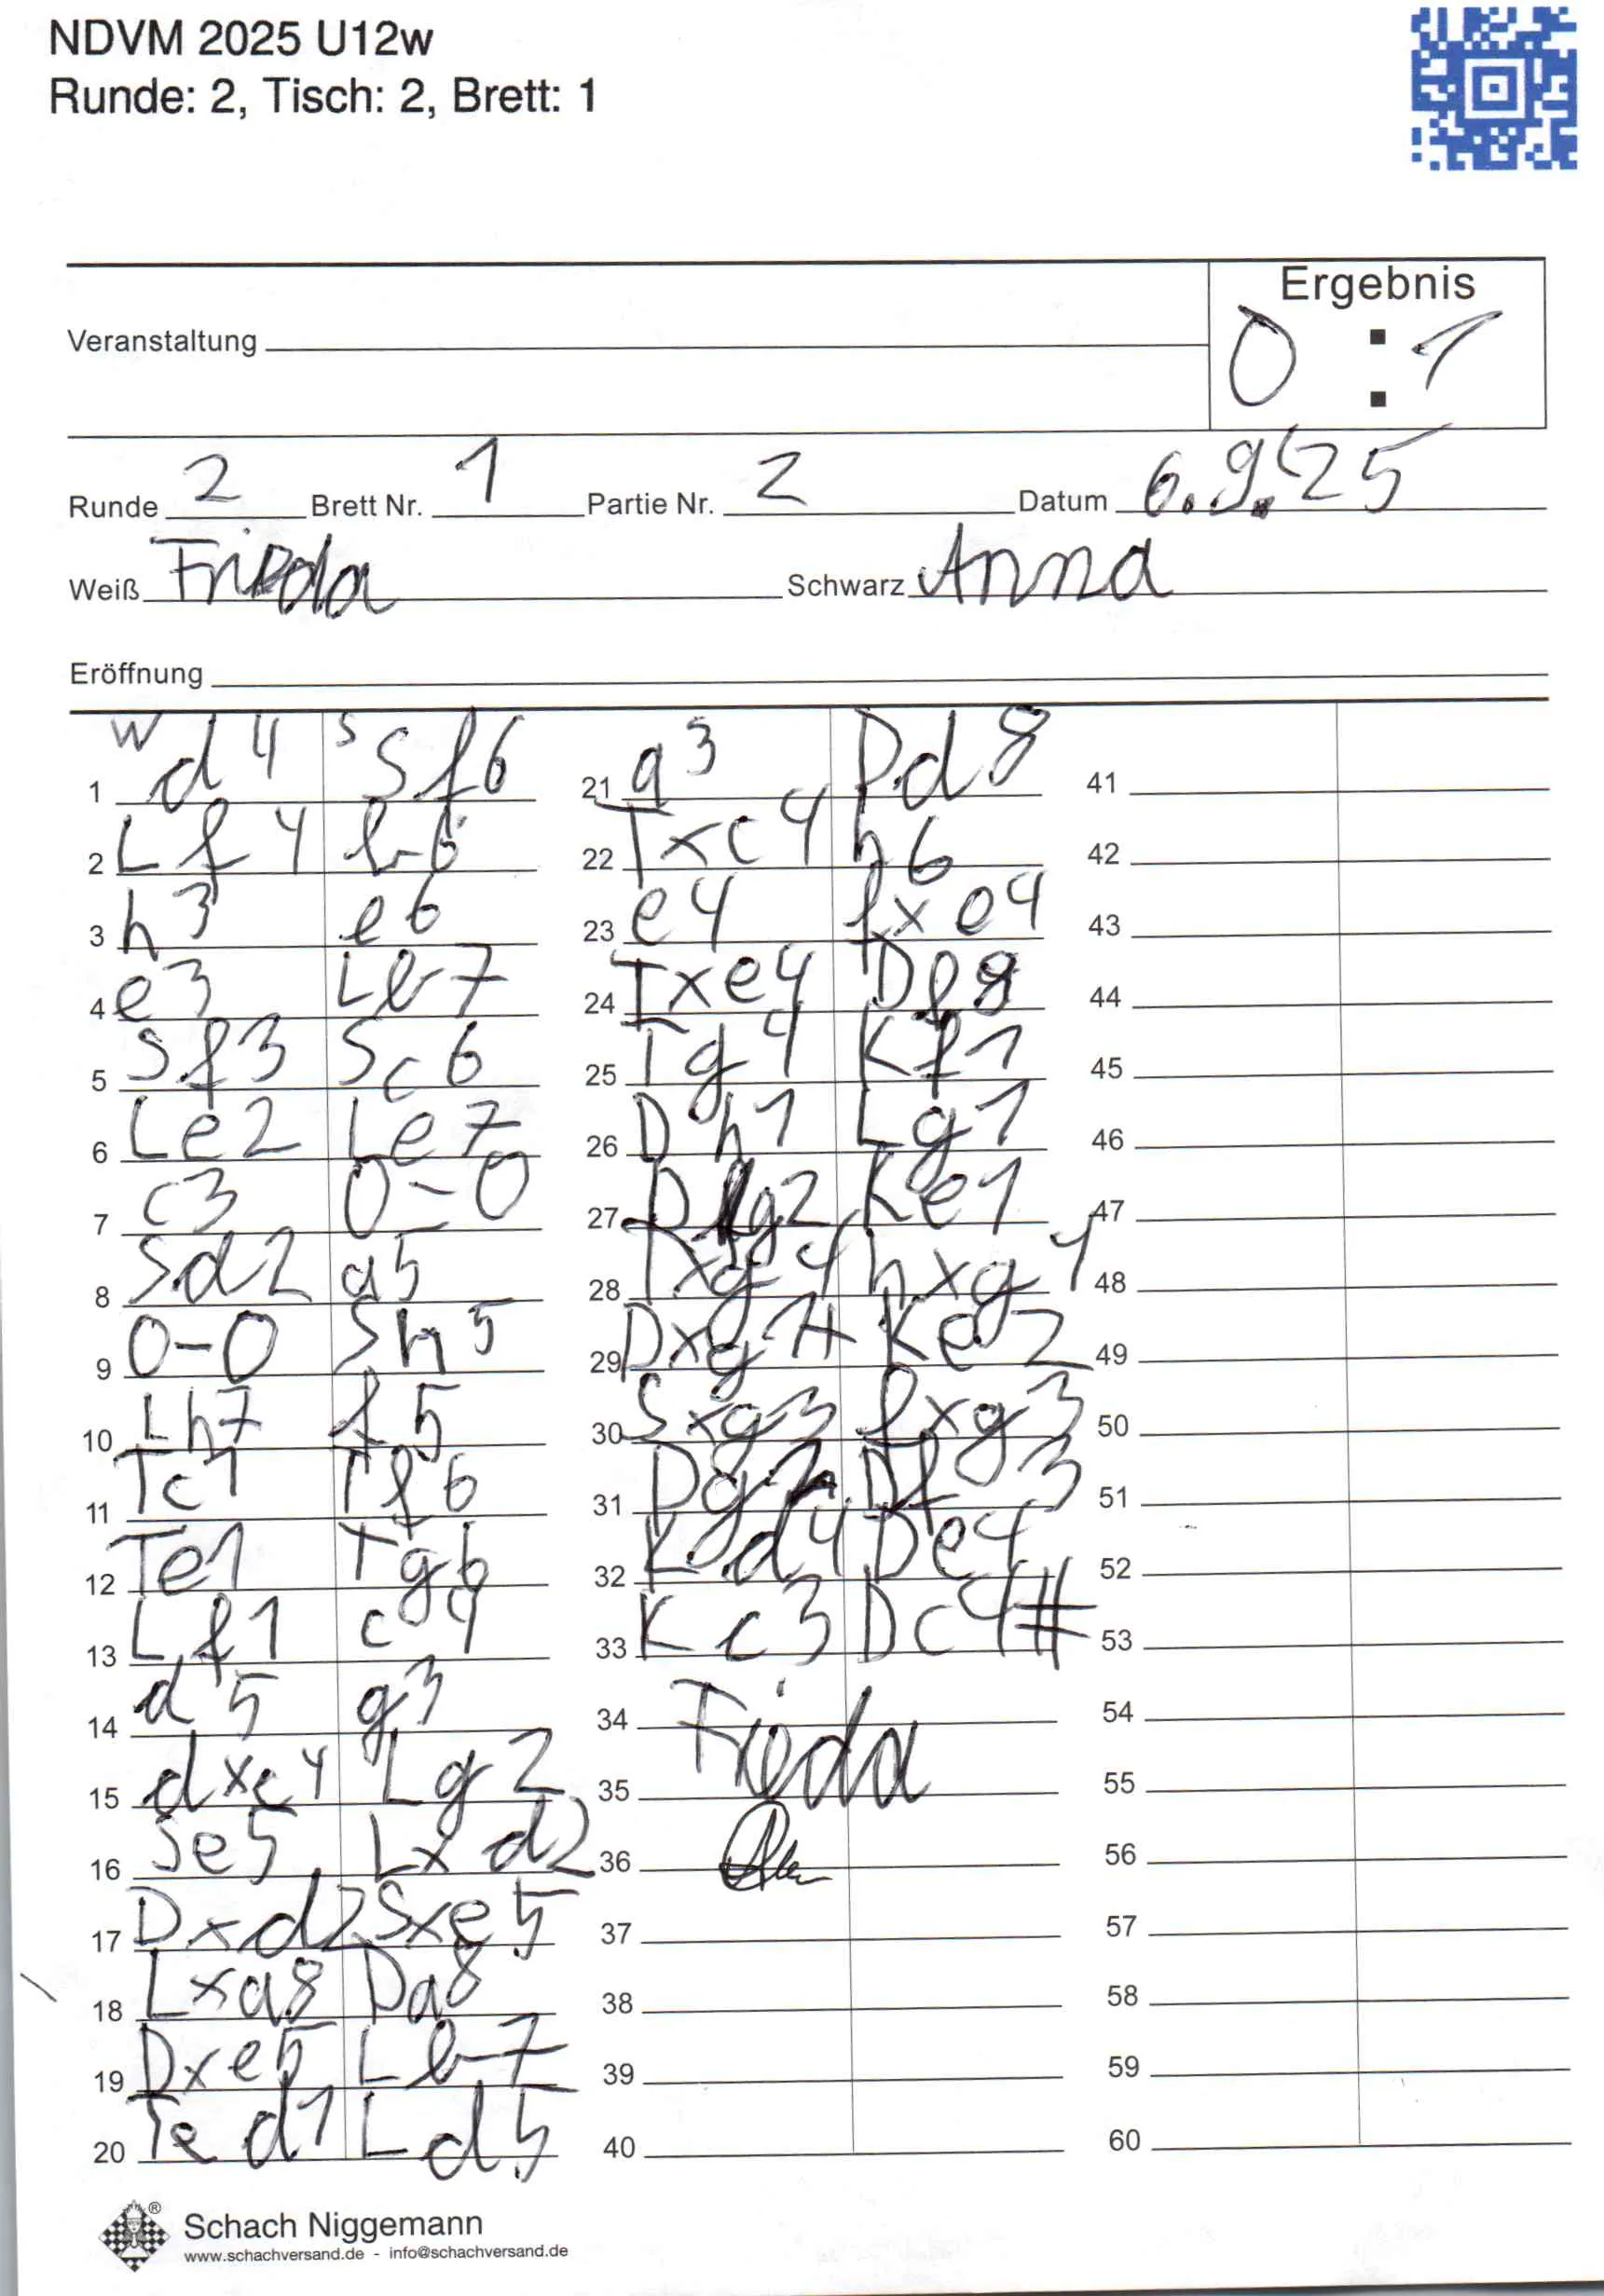 NDVM 2025 U12w
Runde: 2, Tisch: 2, Brett: 1
Ergebnis
0 : 1
Veranstaltung
Runde 2 Brett Nr. 1 Partie Nr. 2 Datum 6.9.25
Weiß Frieda Schwarz Anna
Eröffnung
W S
1 d4 Sf6
2 Lf4 b6
3 h3 e6
4 e3 Lb7
5 Sf3 Sc6
6 Le2 Le7
7 c3 0-0
8 Sd2 a5
9 0-0 Sh5
10 Lh7 f5
11 Tc1 Tf6
12 Te1 Tg6
13 Lf1 c4
14 d5 g3
15 dxc4 Lg2
16 Se5 Lxd2
17 Dxd2 Sxe5
18 Lxa8 Da8
19 Dxe5 Lb7
20 Te d1 Ld5
21 a3 Dd8
22 Txc4 h6
23 e4 fxe4
24 Txe4 Df8
25 Tg4 Kf1
26 Dh1 Lg1
27 Dg2 Ke1
28 Txg4 hxg4
29 Dxg4+ Ke2
30 Sxg3 fxg3
31 Dg2 Df3
32 Kd4 De4
33 Kc3 Dc4#
34 Frieda
35
36
37
38
39
40
41
42
43
44
45
46
47
48
49
50
51
52
53
54
55
56
57
58
59
60
®
Schach Niggemann
www.schachversand.de - info@schachversand.de